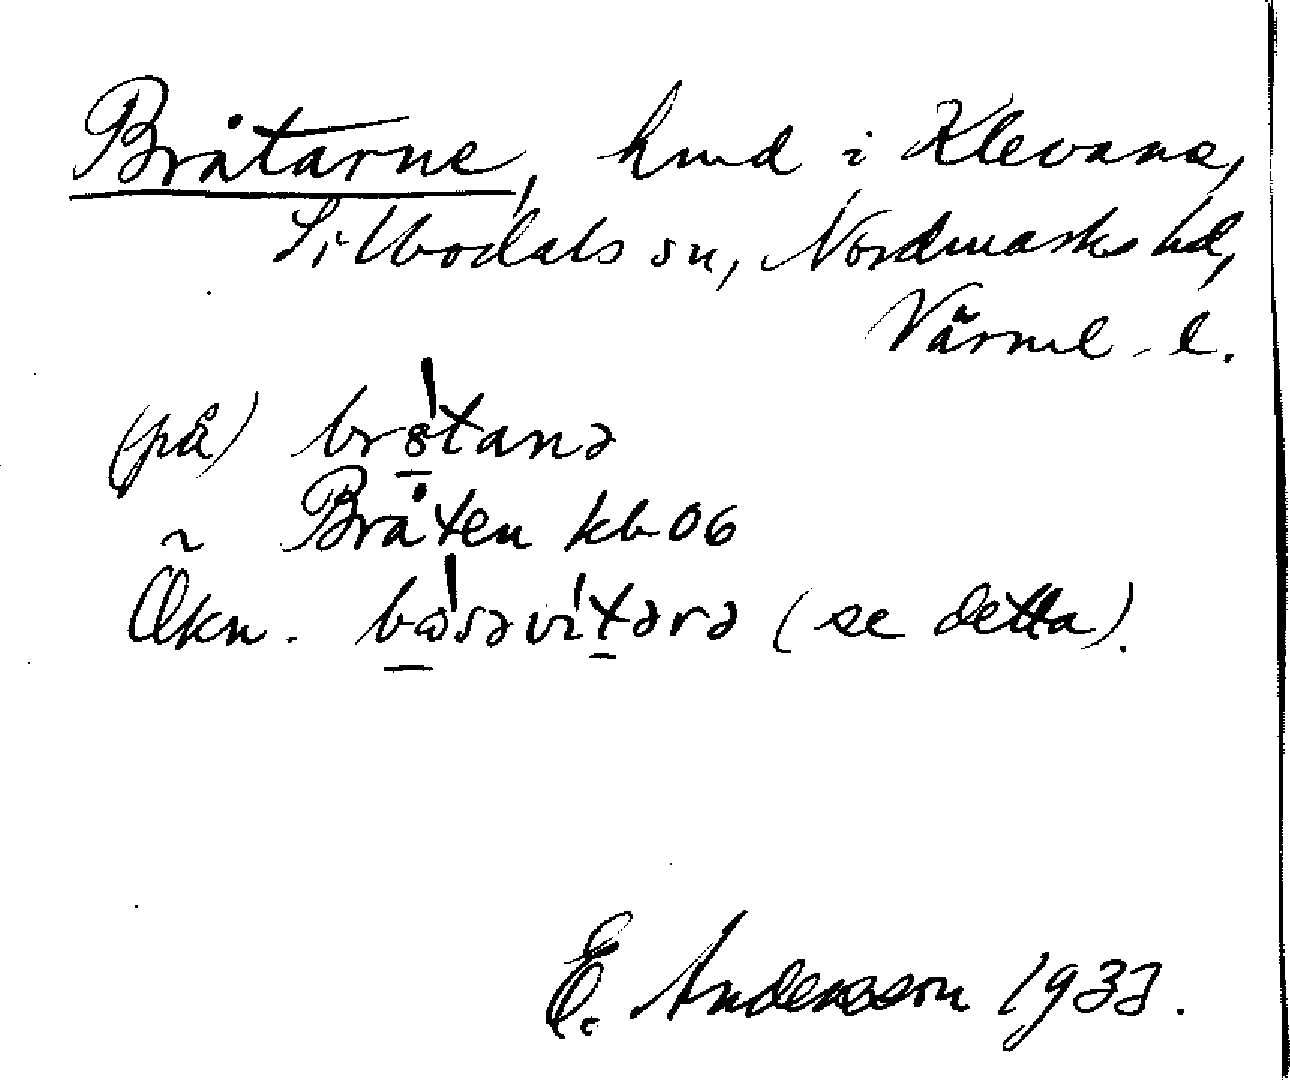 Bråtarne, hmd i Klevane,
Silbodals sn, Nordmarks hd,
Värml. l.
(på) br8̲'tanə
~ Bråten kb 06
Økn. bω̲'səvi't̲ərə (se detta).
E. Andersson 1933.